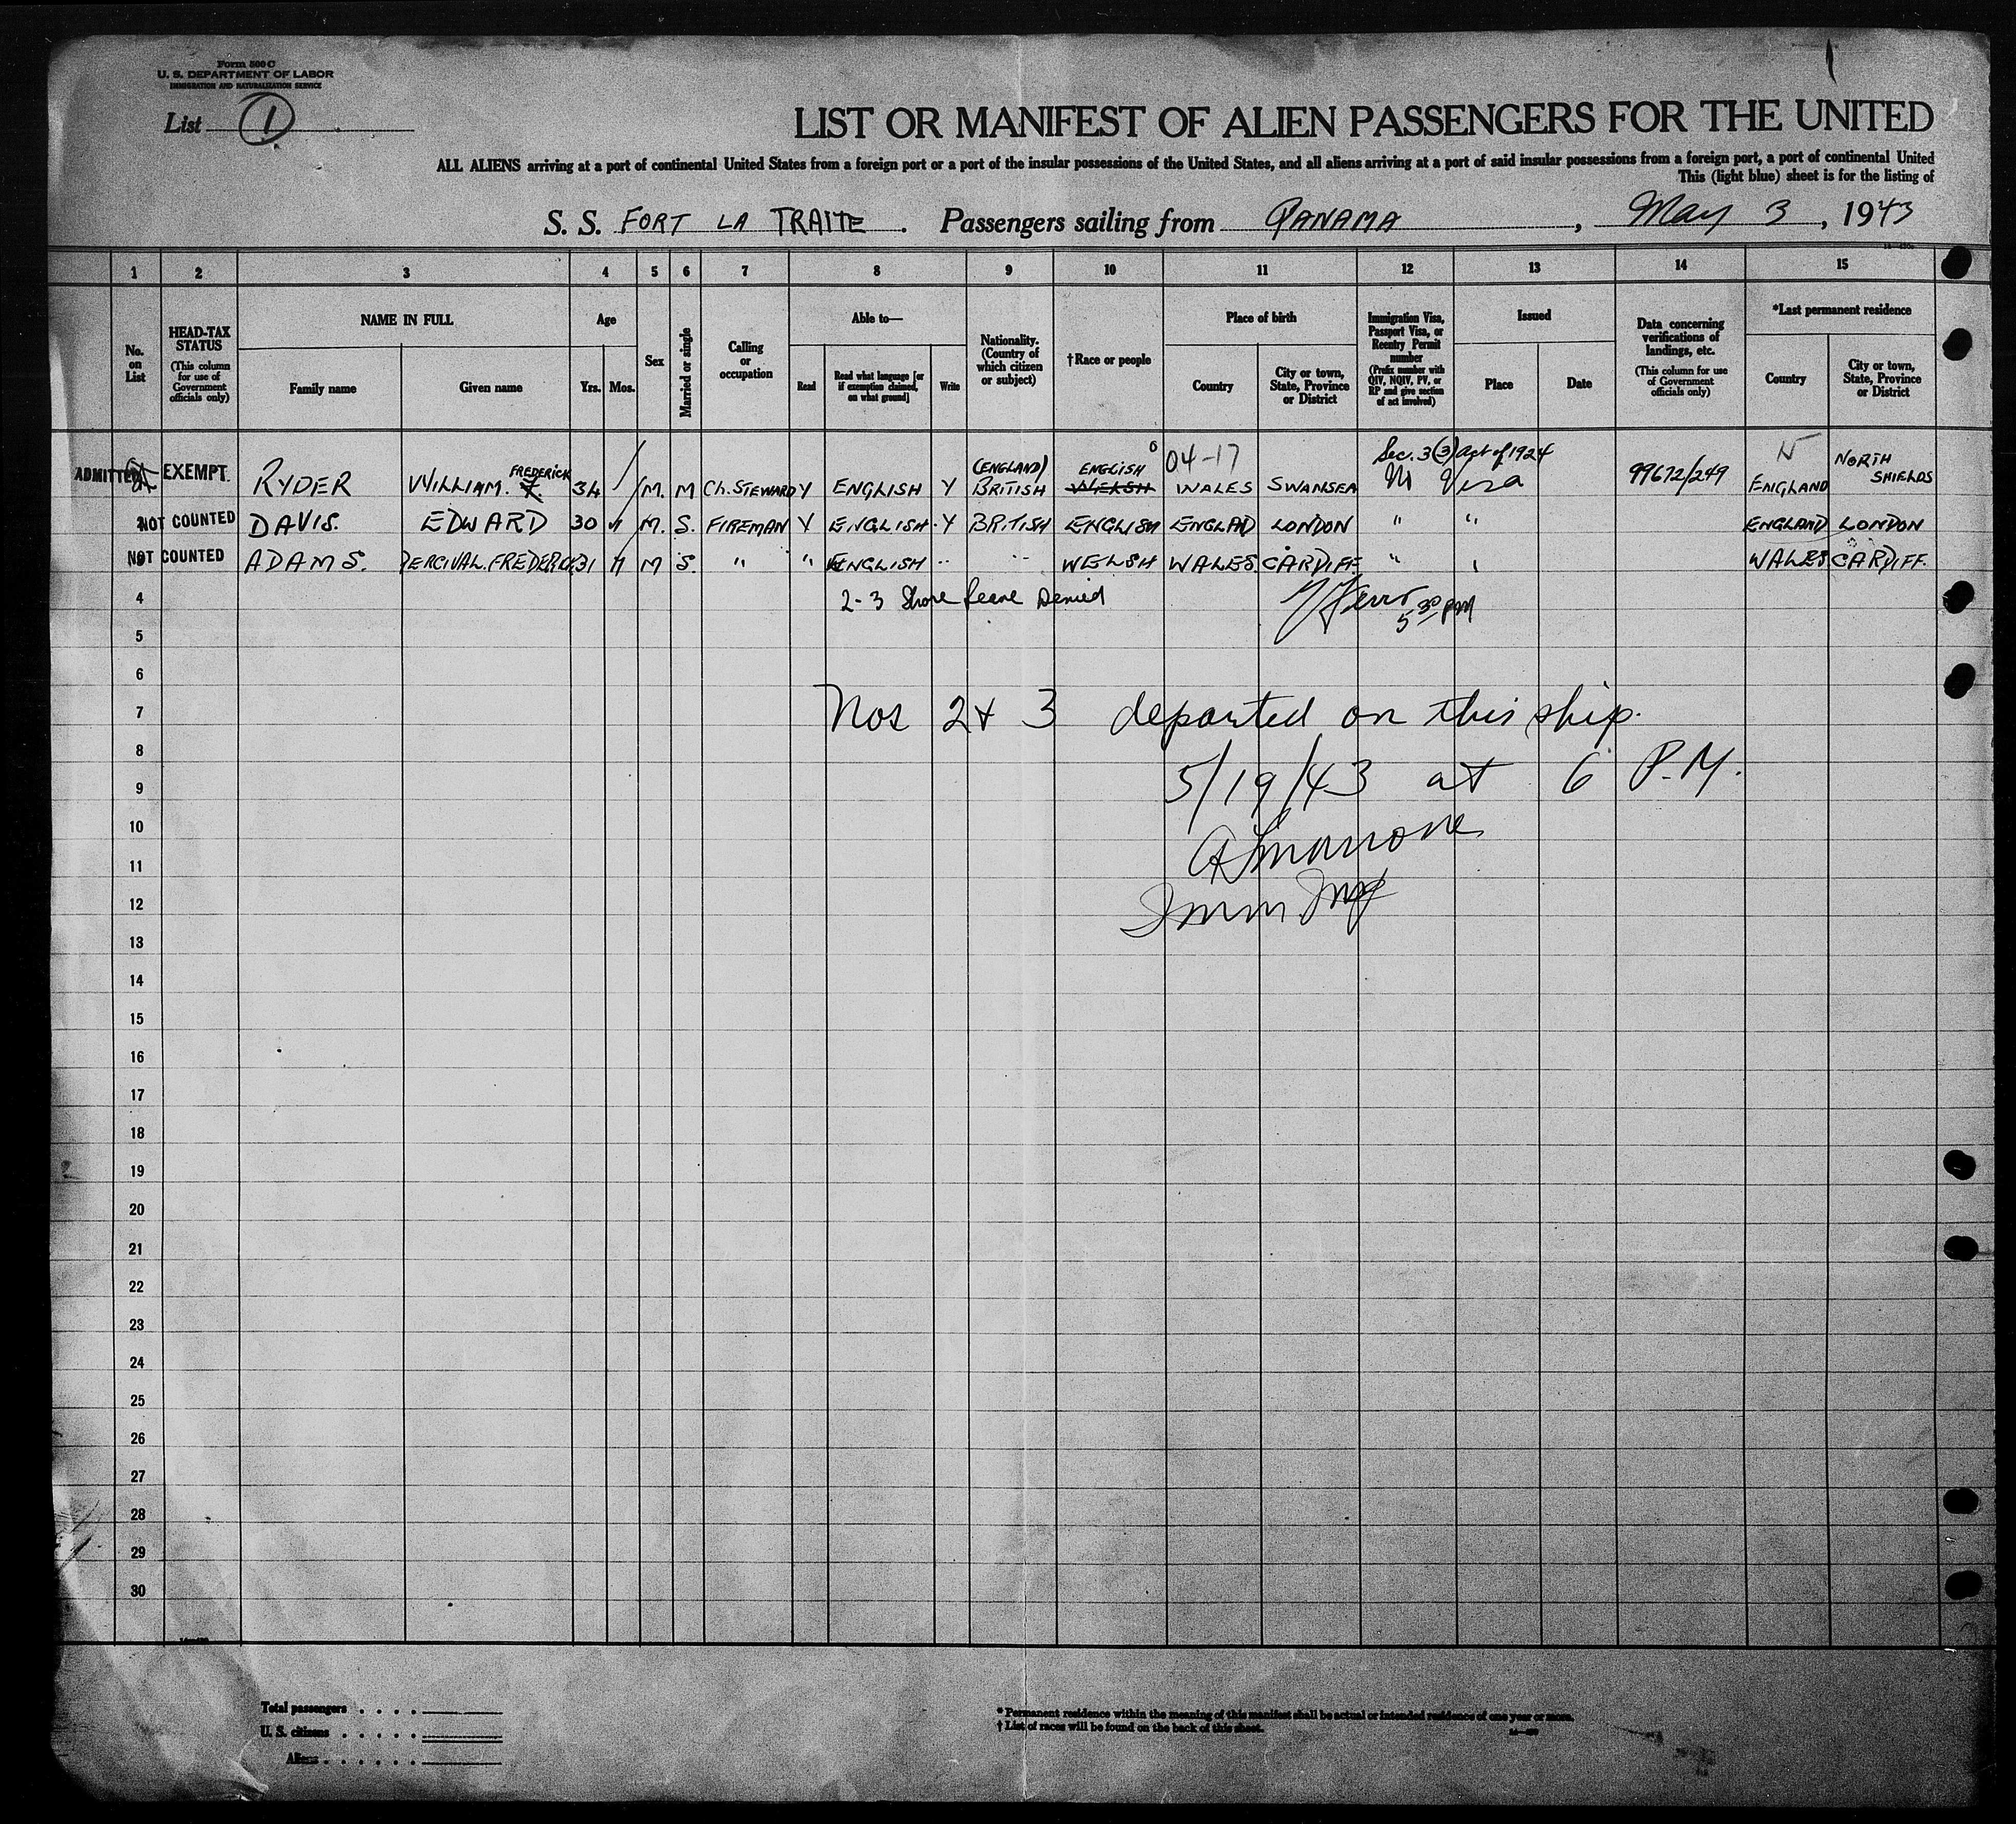 Form 500 C
U. S. DEPARTMENT OF LABOR
IMMIGRATION AND NATURALIZATION SERVICE
List 1
LIST OR MANIFEST OF ALIEN PASSENGERS FOR THE UNITED
ALL ALIENS arriving at a port of continental United States from a foreign port or a port of the insular possessions of the United States, and all aliens arriving at a port of said insular possessions from a foreign port, a port of continental United
This (light blue) sheet is for the listing of
S. S. FORT LA TRAITE . Passengers sailing from PANAMA , May 3 , 1943
1 2 3 4 5 6 7 8 9 10 11 12 13 14 15
No. on List
HEAD-TAX STATUS (This column for use of Government officials only)
NAME IN FULL
Family name
Given name
Age
Yrs. Mos.
Sex
Married or single
Calling or occupation
Able to—
Read
Read what language [or if exemption claimed, on what ground]
Write
Nationality. (Country of which citizen or subject)
†Race or people
Place of birth
Country
City or town, State, Province or District
Immigration Visa, Passport Visa, or Reentry Permit number (Prefix number with QIV, NQIV, PV, or RP and give section of act involved)
Issued
Place
Date
Data concerning verifications of landings, etc. (This column for use of Government officials only)
*Last permanent residence
Country
City or town, State, Province or District
04-17 Sec. 3(3) Act of 1924
ADMITTED EXEMPT. RYDER WILLIAM. FREDERICK 34 M. M Ch. STEWARD Y ENGLISH Y (ENGLAND) BRITISH ENGLISH WELSH WALES SWANSEA No Visa 99672/249 ENGLAND NORTH SHIELDS
2 NOT COUNTED DAVIS. EDWARD 30 M. S. FIREMAN Y ENGLISH Y BRITISH ENGLISH ENGLAD LONDON " " ENGLAND LONDON
NOT COUNTED ADAMS. PERCIVAL. FREDERICK 31 M S. " " ENGLISH " " WELSH WALES. CARDIFF " WALES CARDIFF.
4 2-3 Shore leave Denied
5 30 PM
5
6
7 Nos 2 & 3 departed on this ship.
8
9 5/19/43 at 6 P.M.
10
11
12 Imm Insp
13
14
15
16
17
18
19
20
21
22
23
24
25
26
27
28
29
30
Total passengers . . . .
U. S. citizens . . . . .
Aliens . . . . . .
* Permanent residence within the meaning of this manifest shall be actual or intended residence of one year or more.
† List of races will be found on the back of this sheet.